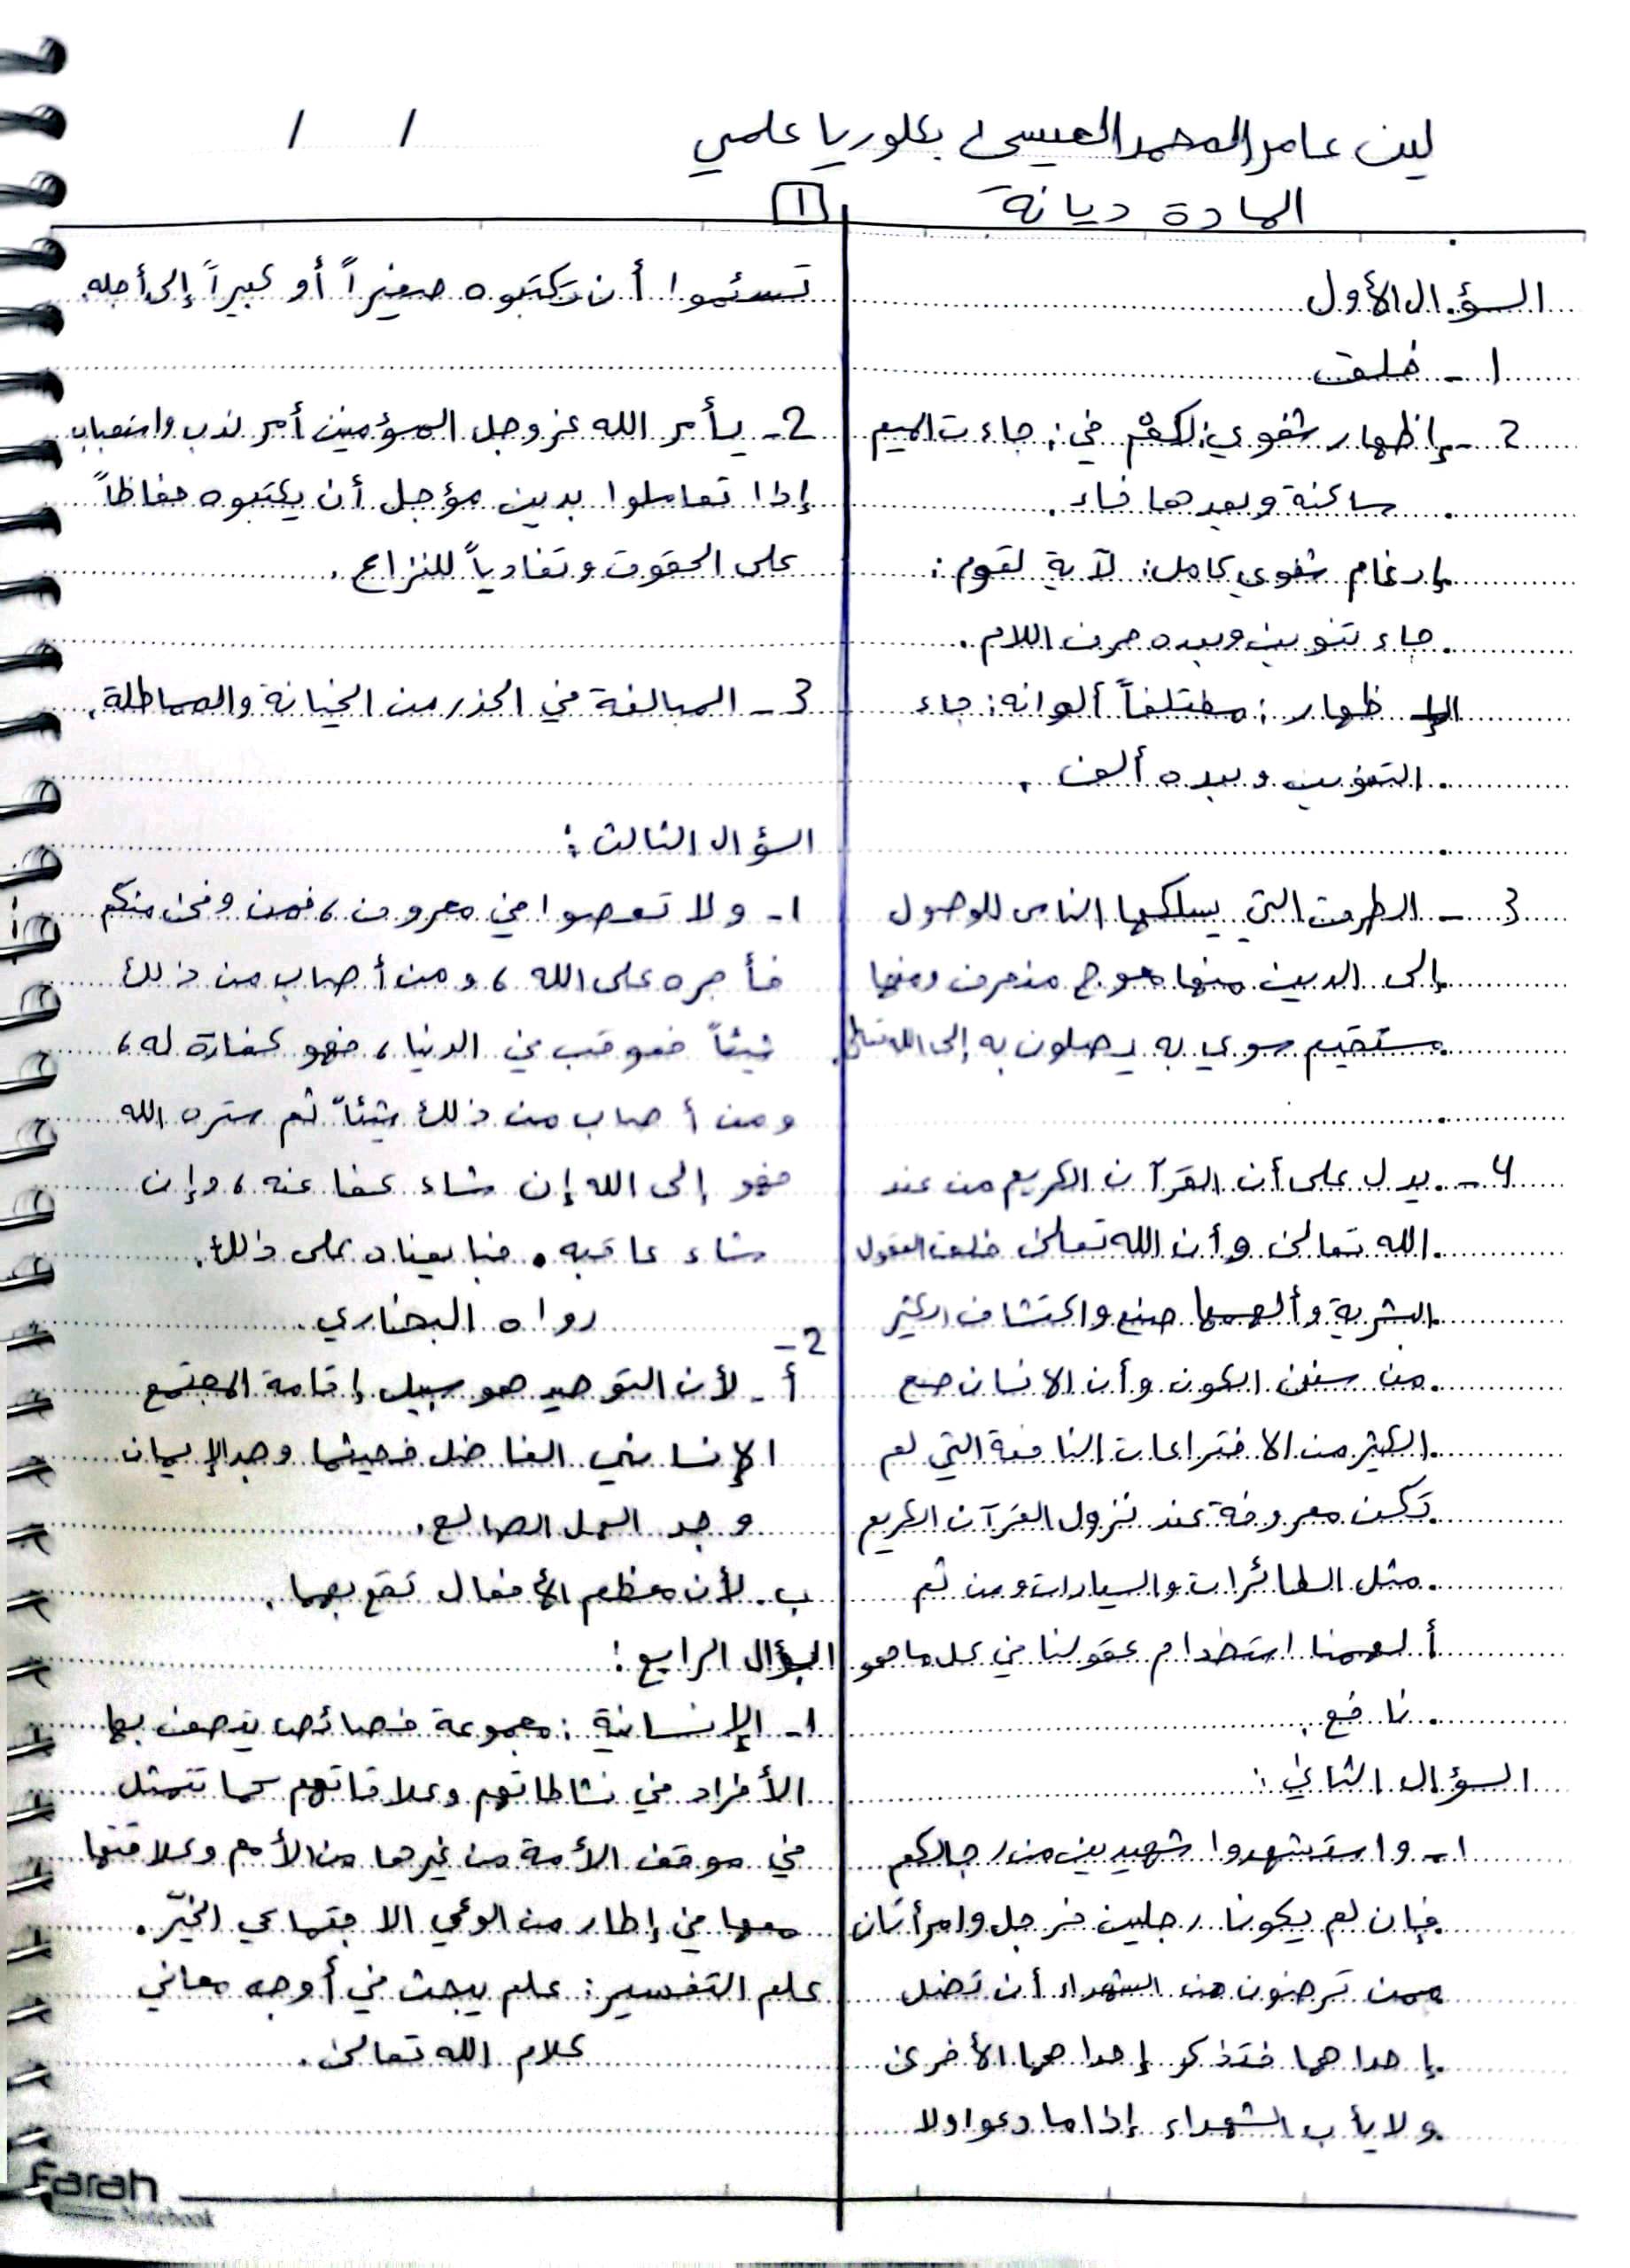 لين عامر المحمد العيسى بكلوريا علمي
/ /
المادة ديانة
1
السؤال الأول
1 - خلق
2 - إظهار شفوي: لكم في: جاءت الميم
ساكنة وبعدها فاء.
إدغام شفوي كامل: لآية لقوم:
جاء تنوين وبعده حرف اللام.
إظهار: مختلفاً ألوانه: جاء
التنوين وبعده ألف.
3 - الطرق التي يسلكها الناس للوصول
إلى الدين منها معوج منحرف ومنها
مستقيم سوي به يصلون به إلى الله تعالى.
4 - يدل على أن القرآن الكريم من عند
الله تعالى وأن الله تعالى خلق العقول
البشرية وألهمها صنع واكتشاف الكثير
من سنن الكون وأن الانسان صنع
الكثير من الاختراعات النافعة التي لم
تكن معروفة عند نزول القرآن الكريم
مثل الطائرات والسيارات ومن ثم
ألهمنا استخدام عقولنا في كل ما هو
نافع.
السؤال الثاني:
1 - واستشهدوا شهيدين من رجالكم
فإن لم يكونا رجلين فرجل وامرأتان
ممن ترضون من الشهداء أن تضل
إحداهما فتذكر إحداهما الأخرى
ولا يأب الشهداء إذا ما دعوا ولا
تسئموا أن تكتبوه صغيراً أو كبيراً إلى أجله.
2 - يأمر الله عز وجل المؤمنين أمر ندب واستحباب
إذا تعاملوا بدين مؤجل أن يكتبوه حفاظاً
على الحقوق وتفادياً للنزاع.
3 - المبالغة في الحذر من الخيانة والمماطلة.
السؤال الثالث:
1 - ولا تعصوا في معروف، فمن وفى منكم
فأجره على الله، ومن أصاب من ذلك
شيئاً فعوقب في الدنيا، فهو كفارة له،
ومن أصاب من ذلك شيئاً ثم ستره الله
فهو إلى الله إن شاء عفا عنه، وإن
شاء عاقبه. فبايعناه على ذلك.
رواه البخاري
2 -
أ - لأن التوحيد هو سبيل إقامة المجتمع
الإنساني الفاضل فحيثما وجد الإيمان
وجد العمل الصالح.
ب. لأن معظم الأفعال تقع بهما.
السؤال الرابع:
1 - الإنسانية: مجموعة خصائص يتصف بها
الأفراد في نشاطاتهم وعلاقاتهم كما تتمثل
في موقف الأمة من غيرها من الأمم وعلاقتها
معها في إطار من الوعي الاجتماعي الخيّر.
علم التفسير: علم يبحث في أوجه معاني
كلام الله تعالى.
Farah
Notebook